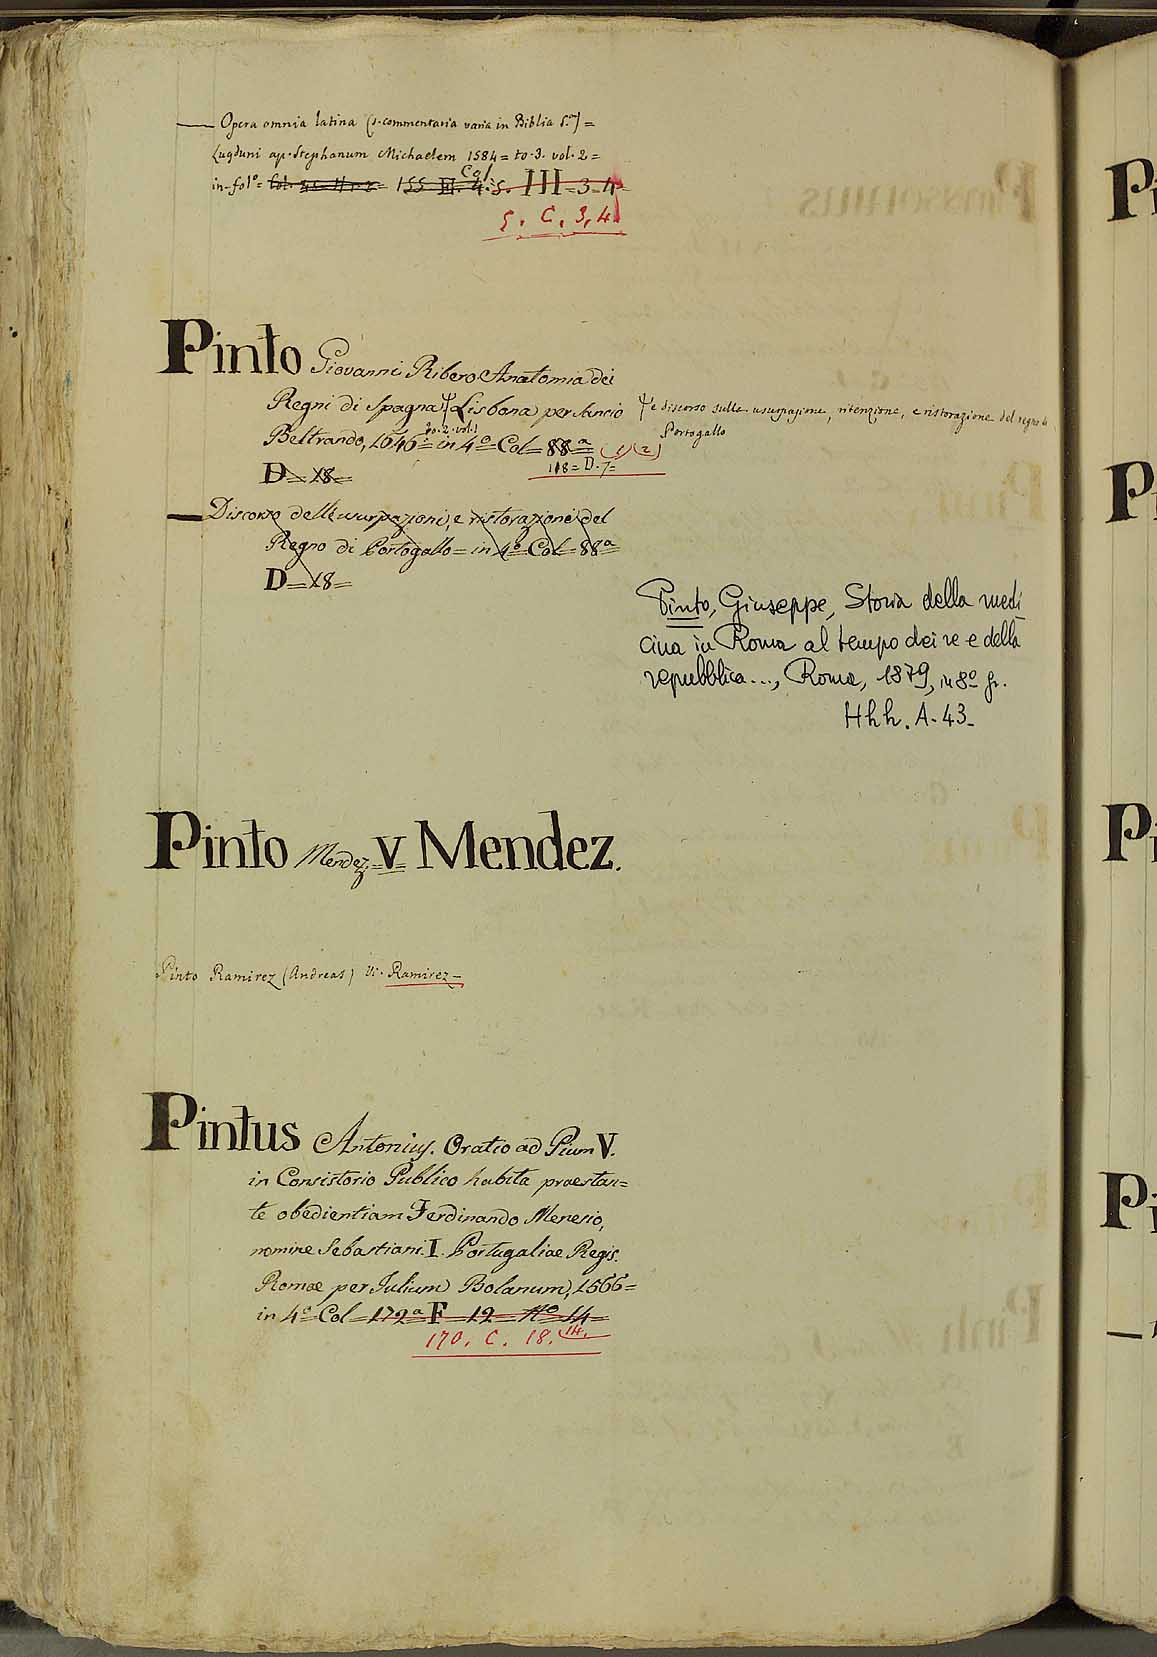 — Opera omnia latina (s. commentaria varia in Biblia S.ᵃ) =
Lugduni ap. Stephanum Michaelem 1584 = to. 3. vol. 2 =
in-folº = Col. 155 II. 4. S. III = 3-4 =
S. C. 3, 4.
Pinto Giovanni Ribero Anatomia dei
Regni di Spagna † Lisbona per Sancio
† e discorso sulla usurpazione, ritenzione, e ristorazione del regno di
Portogallo
to. 2. vol. 1
Beltrando, 1646 = in 4º = Col = 88ª = (1) (2)
118 = D. 7 =
D = 18 =
— Discorso delle usurpazioni, e ristorazione del
Regno di Portogallo = in 4º Col = 88ª
D = 18 =
Pinto, Giuseppe, Storia della medi
cina in Roma al tempo dei re e della
repubblica..., Roma, 1879, in 8º gr.
Hhh. A. 43.
Pinto Mendez = V Mendez.
Pinto Ramirez (Andreas) Vi. Ramirez =
Pintus Antonius. Oratio ad Pium V.
in Consistorio Publico habita praestan=
te obedientiam Ferdinando Menesio,
nomine Sebastiani I. Portugaliae Regis.
Romae per Julium Bolanum, 1566 =
in 4º Col = 172ª F 12 = Nº 14 =
170. C. 18. 14.